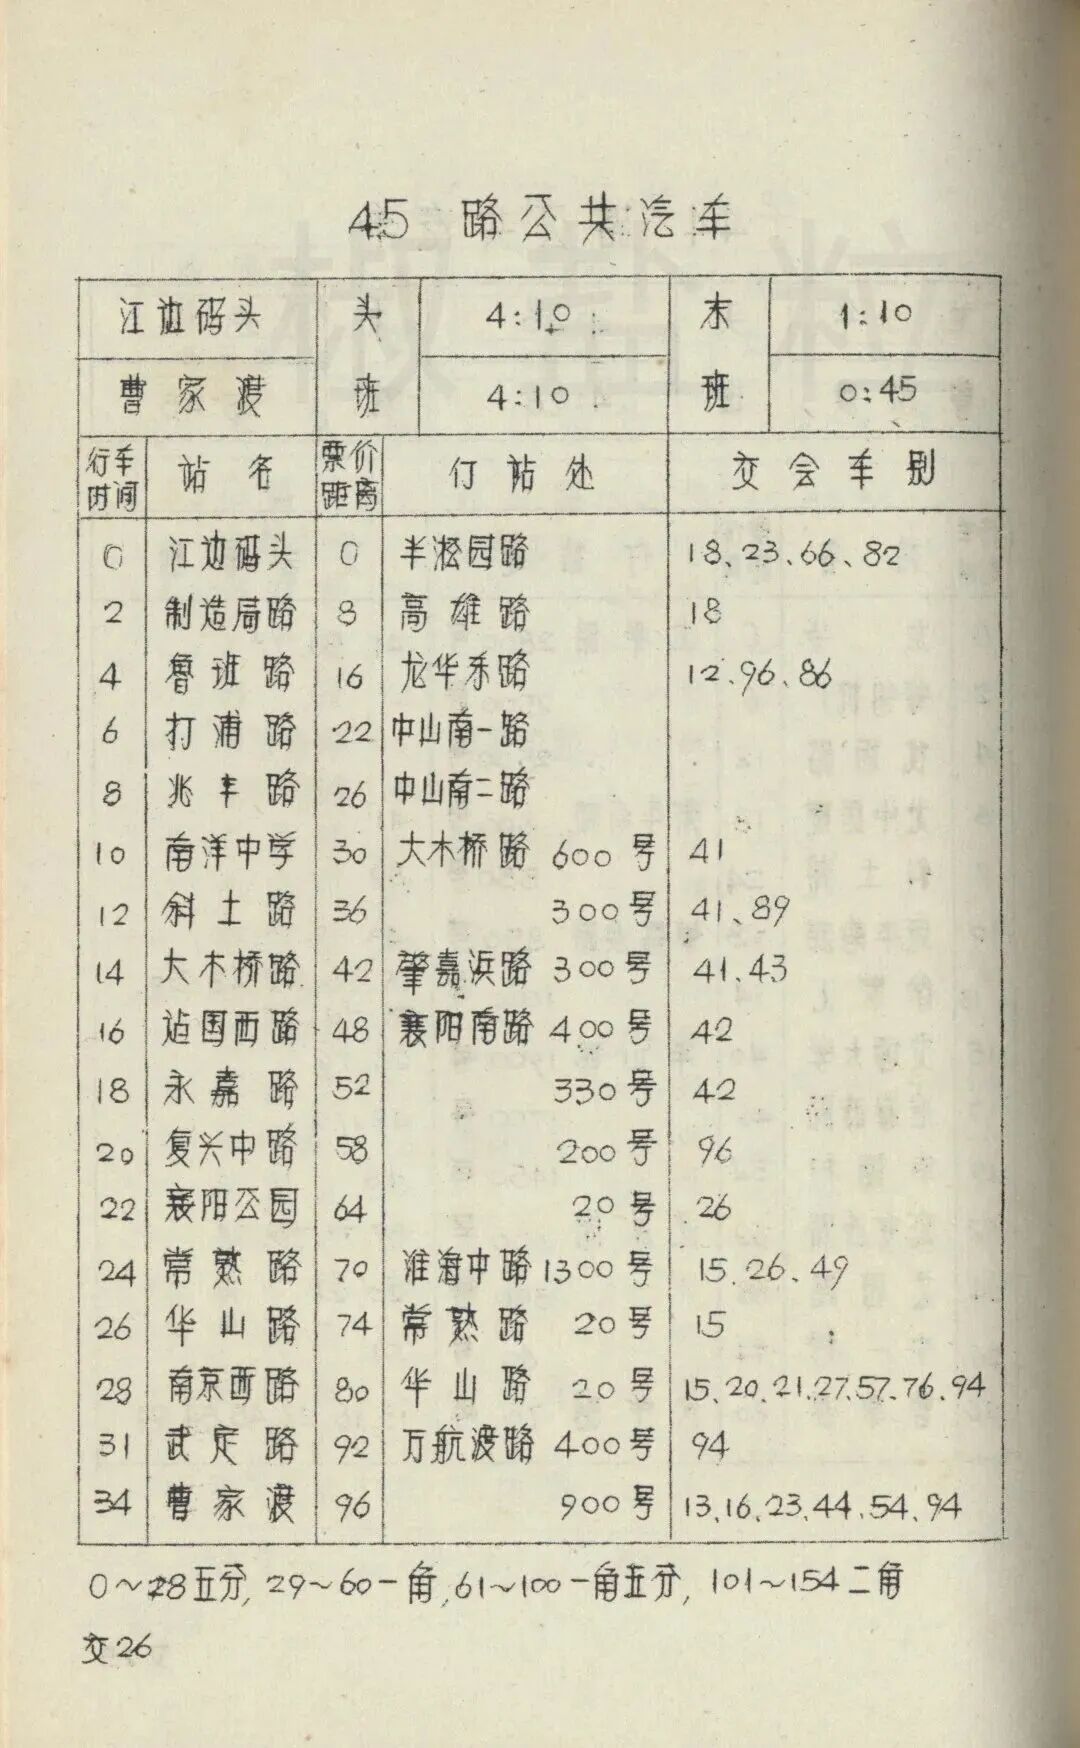 45 路公共汽车
江边码头 头 4:10 末 1:10
曹家渡 班 4:10 班 0:45
行车时间 站名 票价距离 仃站处 交会车别
0 江边码头 0 半淞园路 18、23、66、82
2 制造局路 8 高雄路 18
4 鲁班路 16 龙华东路 12、96、86
6 打浦路 22 中山南一路
8 兆丰路 26 中山南二路
10 南洋中学 30 大木桥路 600号 41
12 斜土路 36 300号 41、89
14 大木桥路 42 肇嘉浜路 300号 41、43
16 建国西路 48 襄阳南路 400号 42
18 永嘉路 52 330号 42
20 复兴中路 58 200号 96
22 襄阳公园 64 20号 26
24 常熟路 70 淮海中路 1300号 15、26、49
26 华山路 74 常熟路 20号 15
28 南京西路 80 华山路 20号 15、20、21、27、57、76、94
31 武定路 92 万航渡路 400号 94
34 曹家渡 96 900号 13、16、23、44、54、94
0~28五分,29~60一角,61~100一角五分,101~154二角
交26